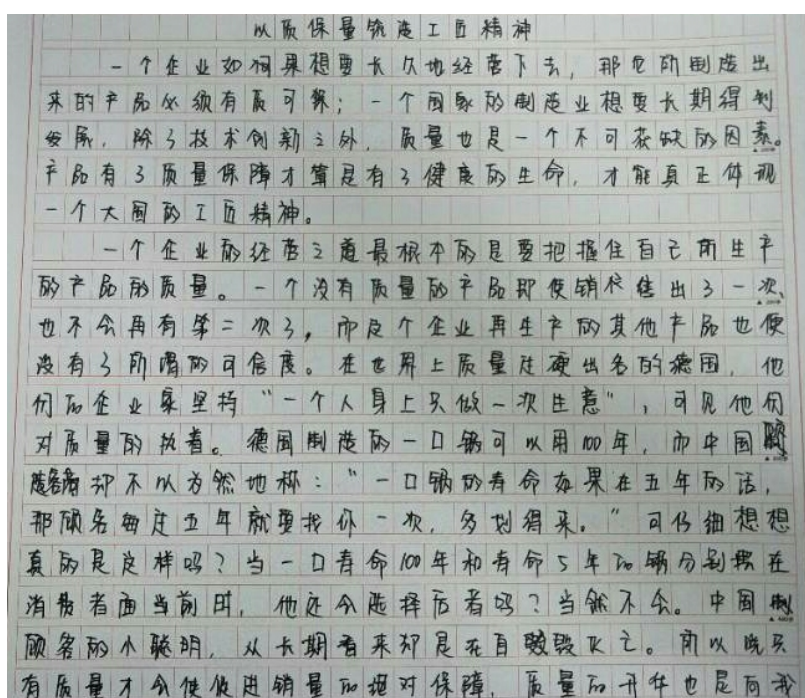 以质保量筑造工匠精神
一个企业如何果想要长久地经营下去，那它所制造出
来的产品必须有质可靠；一个国家的制造业想要长期得到
发展，除了技术创新之外，质量也是一个不可获缺的因素。
产品有了质量保障才算是有了健康的生命，才能真正体现
一个大国的工匠精神。
一个企业的经营之道最根本的是要把握住自己所生产
的产品的质量。一个没有质量的产品即使销售出了一次，
也不会再有第二次了，而这个企业再生产的其他产品也便
没有了所谓的可信度。在世界上质量过硬出名的德国，他
们的企业家坚持“一个人身上只做一次生意”，可见他们
对质量的执着。德国制造的一口锅可以用100年，而中国
却不以为然地称：“一口锅的寿命如果在五年的话，
那顾客每过五年就要找你一次，多划得来。”可仔细想想
真的是这样吗？当一口寿命100年和寿命5年的锅分别摆在
消费者面当前时，他还会选择后者吗？当然不会。中国
顾客的小聪明，从长期看来却是在自毁灭亡。所以说买
有质量才会使促进销量的绝对保障，质量的升华也是向我